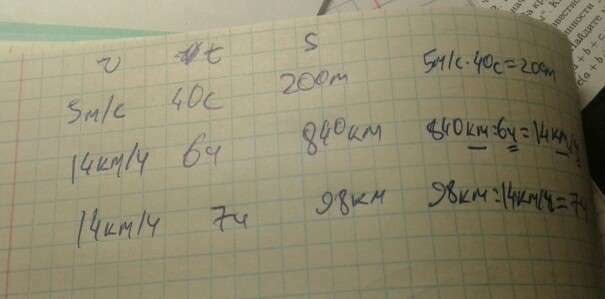 v t S
5м/с 40с 200м 5м/с·40с=200м
14км/ч 6ч 840км 840км:6ч=14км/ч
14км/ч 7ч 98км 98км:14км/ч=7ч